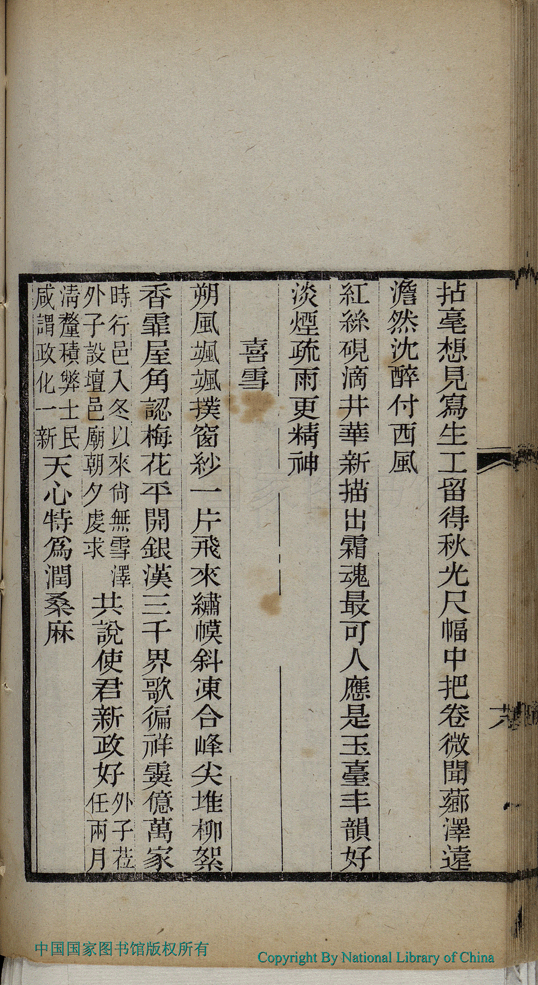 拈毫想見寫生工留得秋光尺幅中把卷微聞薌澤遠
澹然沈醉付西風
紅絲硯滴井華新描出霜魂最可人應是玉臺丰韻好
淡煙疏雨更精神
喜雪
朔風颯颯撲窗紗一片飛來繡幙斜凍合峰尖堆柳絮
香霏屋角認梅花平開銀漢三千界歌徧祥霙億萬家
時行邑入冬以來尙無雪澤
外子設壇邑廟朝夕虔求
共說使君新政好
外子莅
任兩月
淸釐積弊士民
咸謂政化一新
天心特爲潤桑麻
中国国家图书馆版权所有
Copyright By National Library of China